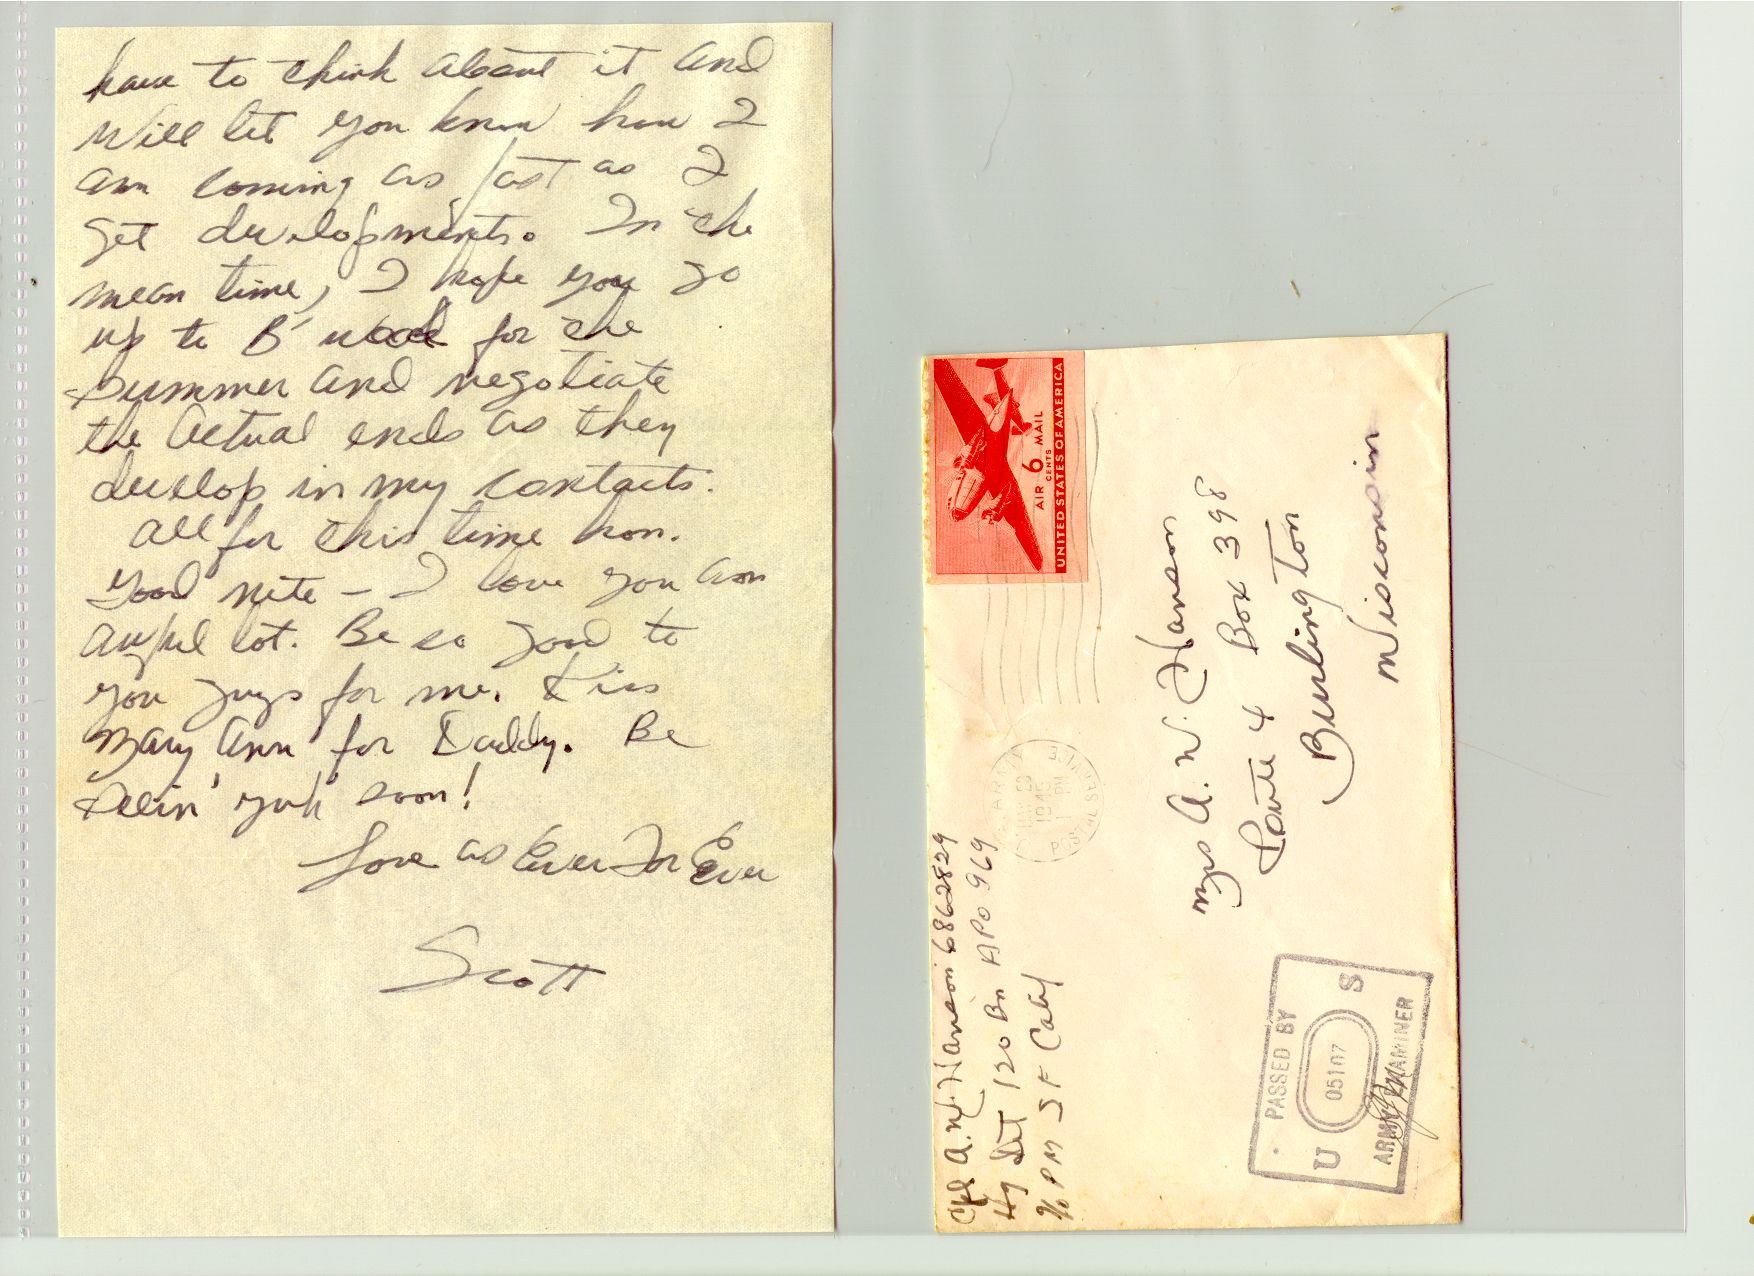 have to think about it and
Will let you know how I
am coming as fast as I
get developments. In the
mean time, I hope you go
up to B'wood for the
summer and negotiate
the actual ends as they
develop in my contacts.
All for this time hon.
Good nite - I love you an
awful lot. Be so good to
you guys for me. Kiss
Mary Ann for Daddy. Be
seein' yuh' soon!
Love as Ever For Ever
Scott
Cpl A. W. Hanson 6862829
Hq Det 120 Bn APO 969
% PM SF Calif
U.S. ARMY
29
1945
PM
POSTAL SERVICE
AIR 6 CENTS MAIL
UNITED STATES OF AMERICA
Mrs A. W. Hanson
Route 4 Box 398
Burlington
Wisconsin
PASSED BY
U 05107 S
ARMY EXAMINER